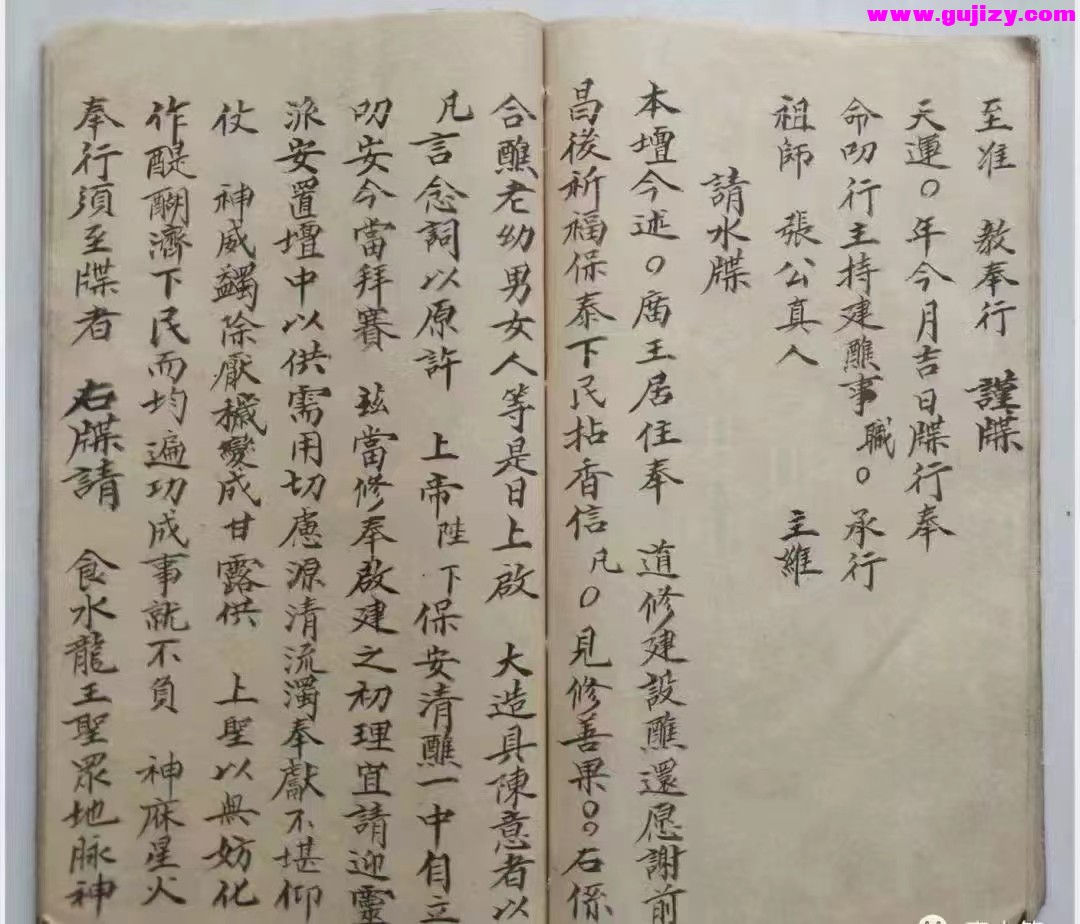 www.gujizy.com
至准 教奉行 謹牒
天運〇年今月吉日牒行奉
命叨行主持建醮事職〇承行
祖師 張公真人 主維
請水牒
本壇今述〇廣王居住奉 道修建設醮還愿謝前
昌後祈福保泰下民拈香信凡〇見修善果〇〇右係
合醮老幼男女人等是日上啟 大造具陳意者以
凡言念詞以原許 上帝陛下保安清醮一中自立
叨安今當拜賽 玆當修奉啟建之初理宜請迎靈
派安置壇中以供需用切慮源清流濁奉獻不堪仰
仗 神威蠲除厭穢變成甘露供 上聖以無妨化
作醍醐濟下民而均遍功成事就不負 神庥星火
奉行須至牒者 右牒請 食水龍王聖眾地脉神